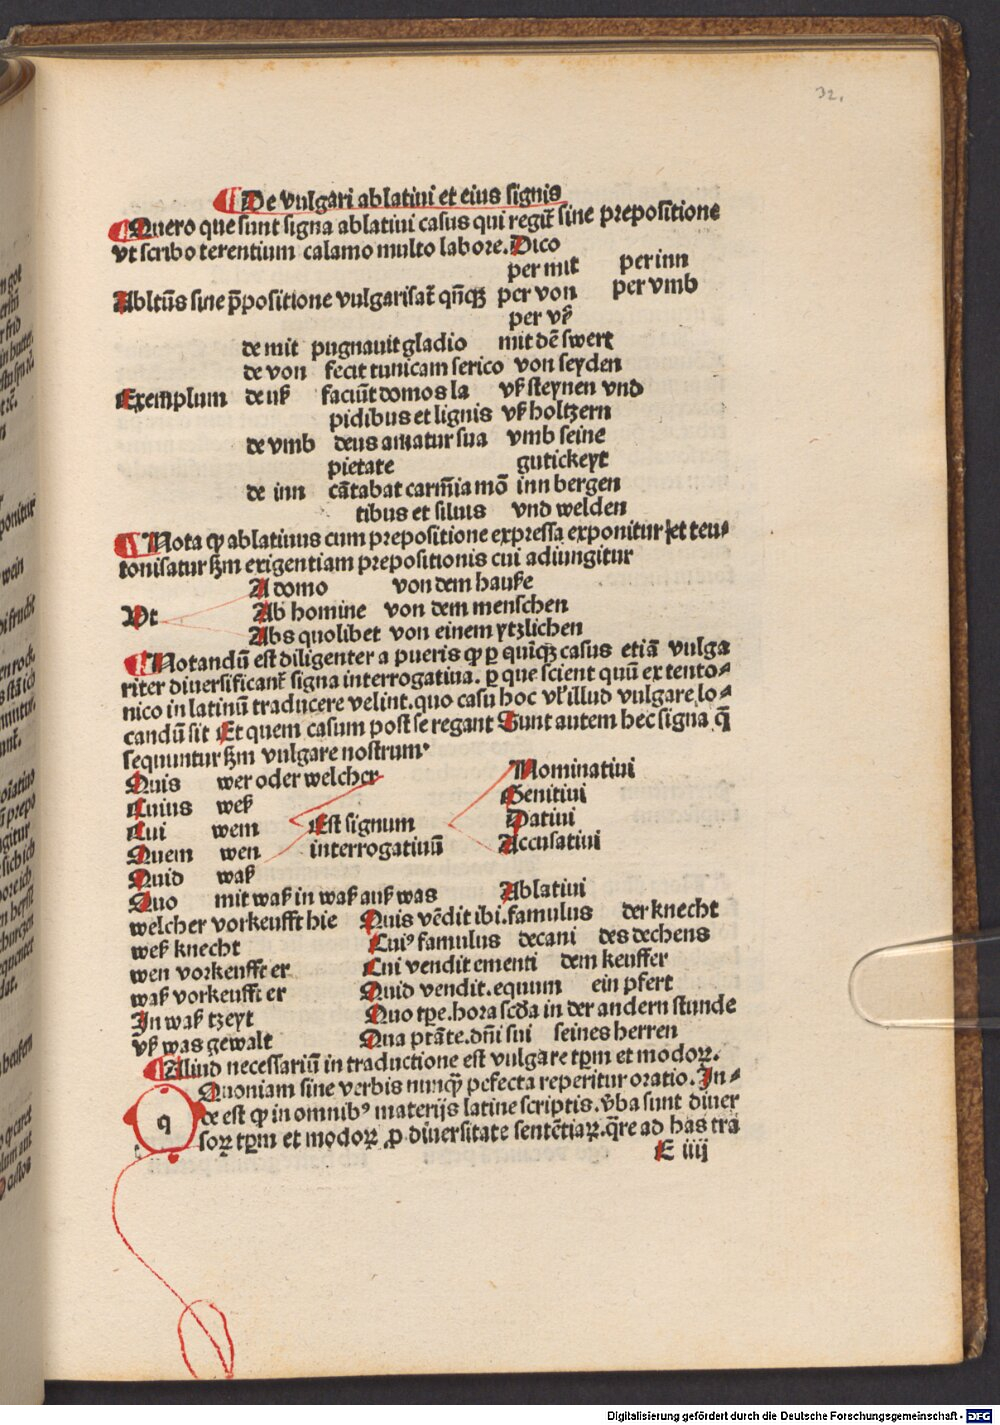 32.
De vulgari ablatiui et eius signis
Quero que sunt signa ablatiui casus qui regit̃ sine prepositione
vt scribo terentium calamo multo labore. Dico
per mit per inn
Ablt̃us sine p̃positione vulgarisat̃ qñq; per von per vmb
per vß
de mit pugnauit gladio mit dẽ swert
de von fecit tunicam serico von seyden
Exemplum de uß faciũt domos la vß steynen vnd
pidibus et lignis vß holtzern
de vmb deus amatur sua vmb seine
pietate gutickeyt
de inn cãtabat carm̃ia mõ inn bergen
tibus et siluis vnd welden
Nota ꝙ ablatiuus cum prepositione expressa exponitur et teu-
tonisatur scḋm exigentiam prepositionis cui adiungitur
A domo von dem hauße
Vt Ab homine von dem menschen
Abs quolibet von einem ytzlichen
Notandũ est diligenter a pueris ꝙ ꝑ quĩq; casus etiã vulga
riter diuersificant̃ signa interrogatiua. ꝑ que scient quũ ex tento-
nico in latinũ traducere velint. quo casu hoc vl̃ illud vulgare lo-
candũ sit Et quem casum post se regant Sunt autem hec signa q̃
sequuntur scḋm vulgare nostrum
Quis wer oder welcher Nominatiui
Cuius weß Genitiui
Cui wem Est signum Datiui
Quem wen interrogatiuũ Accusatiui
Quid waß
Quo mit waß in waß auß was Ablatiui
welcher vorkeufft hie Quis vẽdit ibi. famulus der knecht
weß knecht Cuiꝰ famulus decani des dechens
wen vorkeufft er Cui vendit ementi dem keuffer
waß vorkeufft er Quid vendit. equum ein pfert
In waß tzeyt Quo tp̃e. hora scḋa in der andern stunde
vß was gewalt Qua ptãte. dñi sui seines herren
Aliud necessariũ in traductione est vulgare tp̃m et modoꝝ.
q Quoniam sine verbis nunq̃ pefecta reperitur oratio. In-
de est ꝙ in omnibꝰ materijs latine scriptis. v̾ba sunt diuer
soꝝ tp̃m et modoꝝ ꝓ diuersitate sentẽtiaꝝ. q̃re ad has tra
E iiij
Digitalisierung gefördert durch die Deutsche Forschungsgemeinschaft - DFG